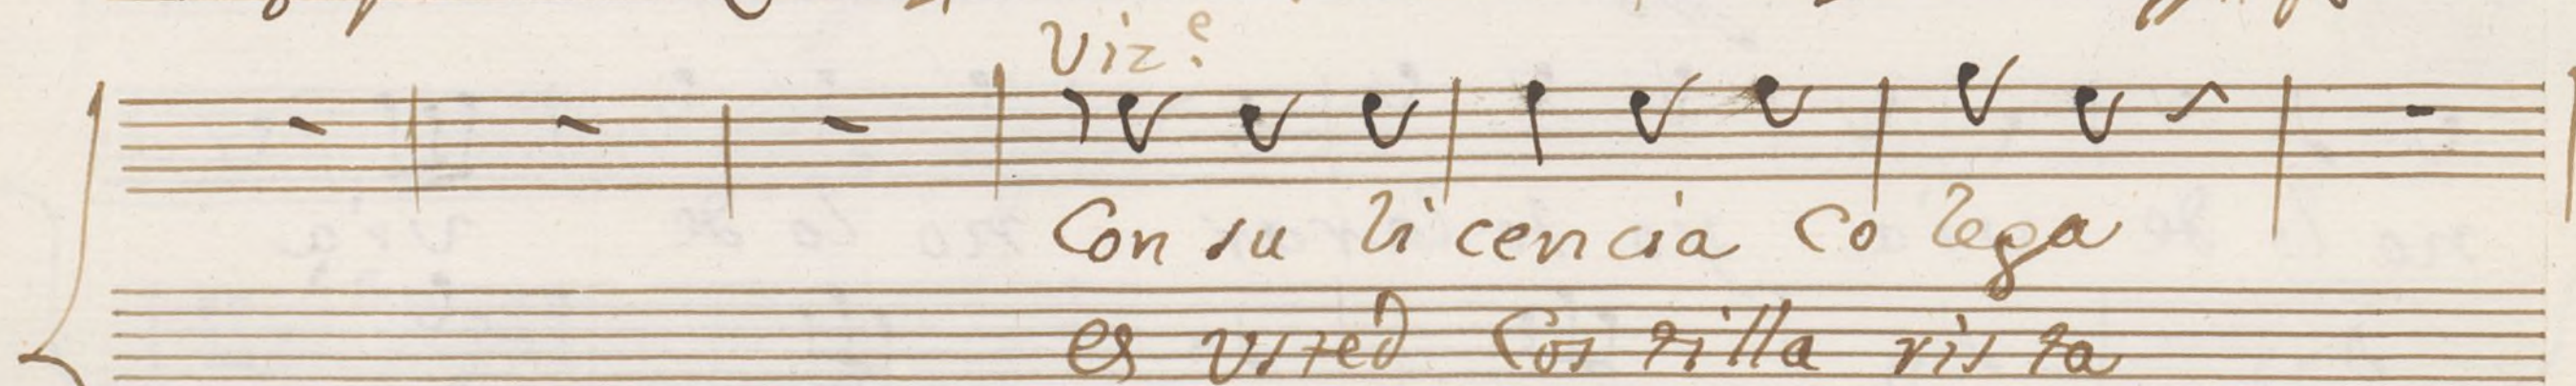 Viz.e
Con su li cencia Co lega
es usted Cos tilla ris ta